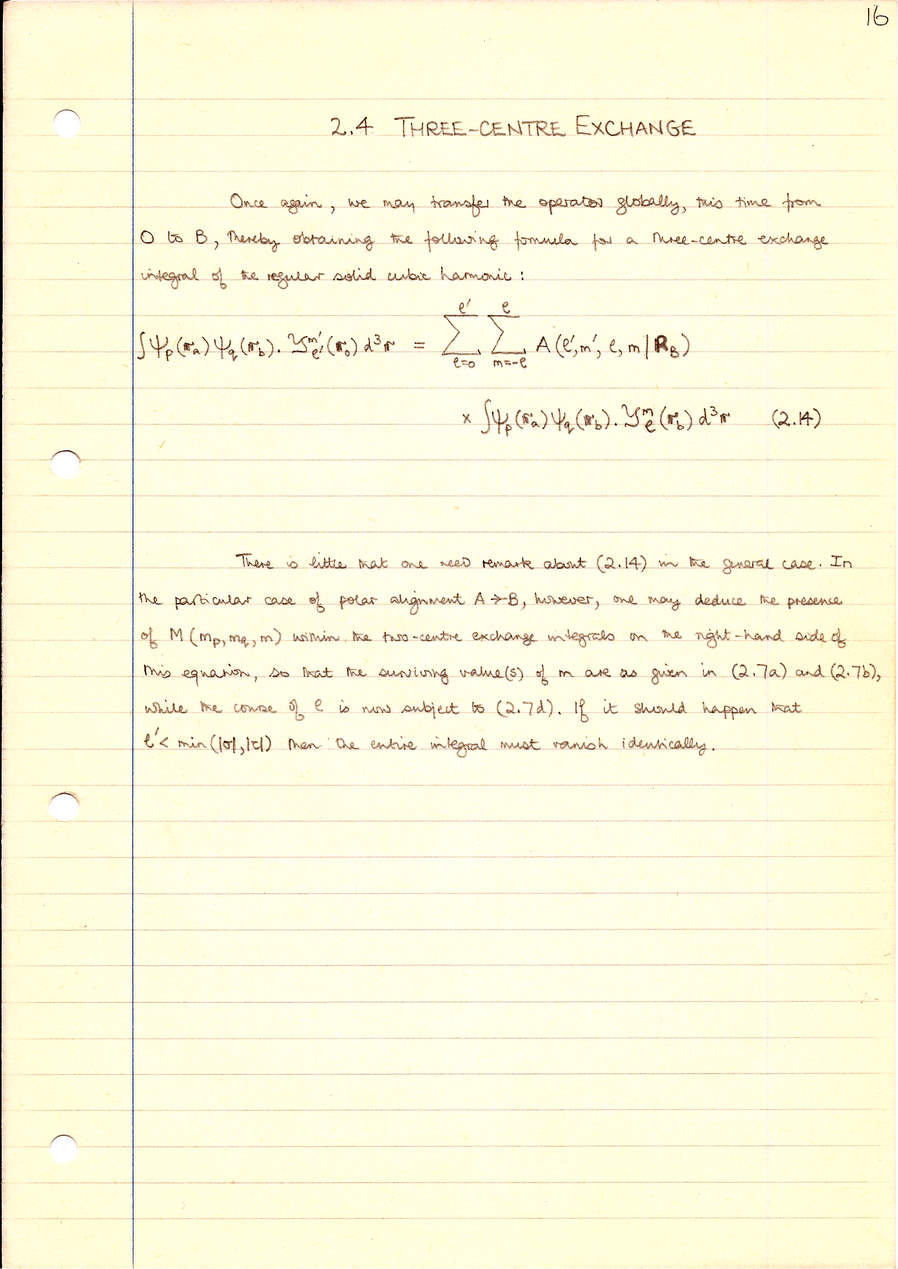 16
2.4 THREE-CENTRE EXCHANGE
Once again, we may transfer the operator globally, this time from
O to B, thereby obtaining the following formula for a three-centre exchange
integral of the regular solid cubic harmonic :
∫ψ_p(𝐫_a) ψ_q(𝐫_b). 𝒴_ℓ'^m'(𝐫_o) d³𝐫 = ∑_{ℓ=0}^{ℓ'} ∑_{m=-ℓ}^{ℓ} A(ℓ', m', ℓ, m | 𝐑_B)
× ∫ψ_p(𝐫_a) ψ_q(𝐫_b). 𝒴_ℓ^m(𝐫_b) d³𝐫 (2.14)
There is little that one need remark about (2.14) in the general case. In
the particular case of polar alignment A→B, however, one may deduce the presence
of M(m_p, m_q, m) within the two-centre exchange integrals on the right-hand side of
this equation, so that the surviving value(s) of m are as given in (2.7a) and (2.7b),
while the course of ℓ is now subject to (2.7d). If it should happen that
ℓ' < min(|σ|,|τ|) then the entire integral must vanish identically.